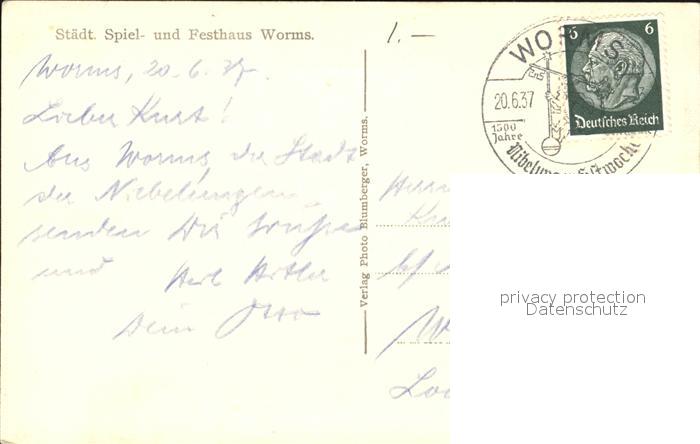 Städt. Spiel- und Festhaus Worms.
1.—
Worms, 20.6.37.
Lieber Kurt!
Aus Worms der Stadt
der Niebelungen
senden Dir Grüße
und Heil Hitler
Dein Otto
Verlag Photo Blumberger, Worms.
WORMS
20.6.37
1500
Jahre
Nibelungen-Festwoche
6 6
Deutsches Reich
Herrn
privacy protection
Datenschutz